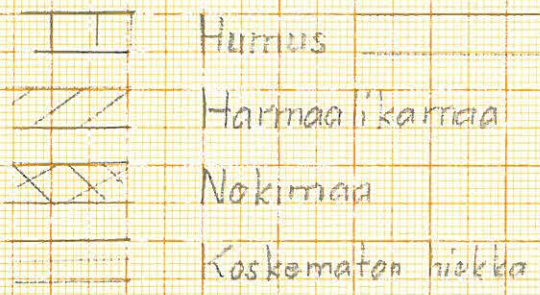 Humus
Harmaa likamaa
Nokimaa
Koskematon hiekka